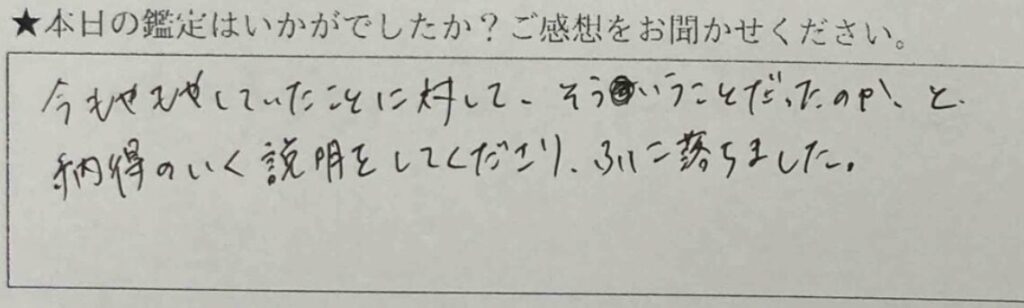 ★本日の鑑定はいかがでしたか？ご感想をお聞かせください。
今もやもやしていたことに対して、そういうことだったのか、と、
納得のいく説明をしてくださり、ふに落ちました。